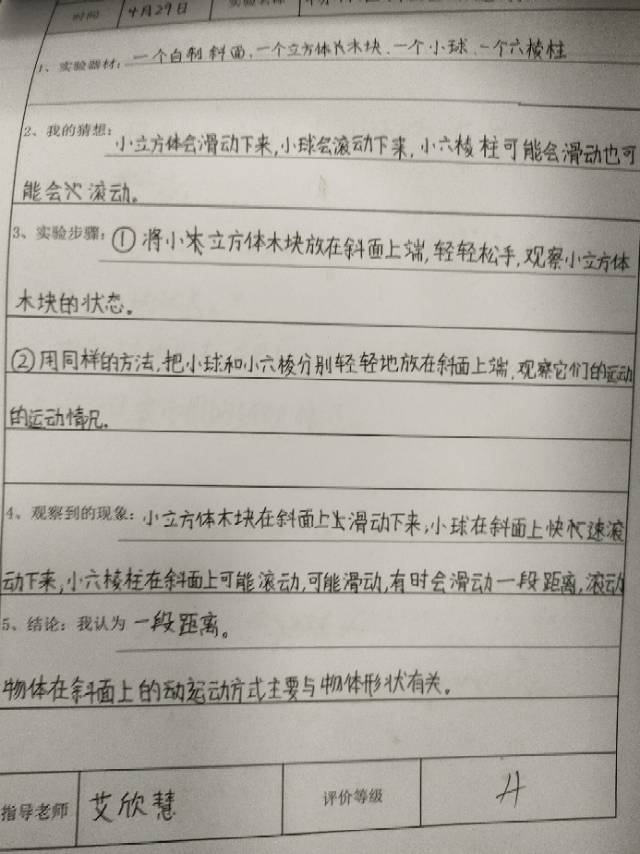 时间 4月29日
1、实验器材：一个自制斜面、一个立方体木块、一个小球、一个六棱柱
2、我的猜想：小立方体会滑动下来,小球会滚动下来,小六棱柱可能会滑动也可
能会滚动。
3、实验步骤：①将小立方体木块放在斜面上端,轻轻松手,观察小立方体
木块的状态。
②用同样的方法,把小球和小六棱分别轻轻地放在斜面上端,观察它们的运动
的运动情况。
4、观察到的现象：小立方体木块在斜面上滑动下来,小球在斜面上快速滚
动下来,小六棱柱在斜面上可能滚动,可能滑动,有时会滑动一段距离,滚动
5、结论：我认为 一段距离。
物体在斜面上的运动方式主要与物体形状有关。
指导老师 艾欣慧 评价等级